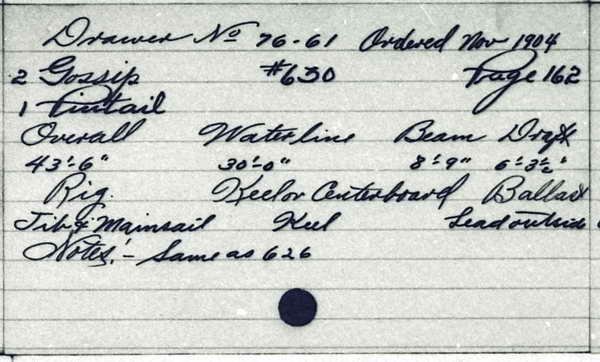 Drawer No 76-61 Ordered Nov 1904
2 Gossip #630 Page 162
1 Pintail
Overall Waterline Beam Draft
43'-6" 30'-0" 8'-9" 6'-3½"
Rig. Keel or Centerboard Ballast
Jib & Mainsail Keel Lead outside
Notes:- Same as 626